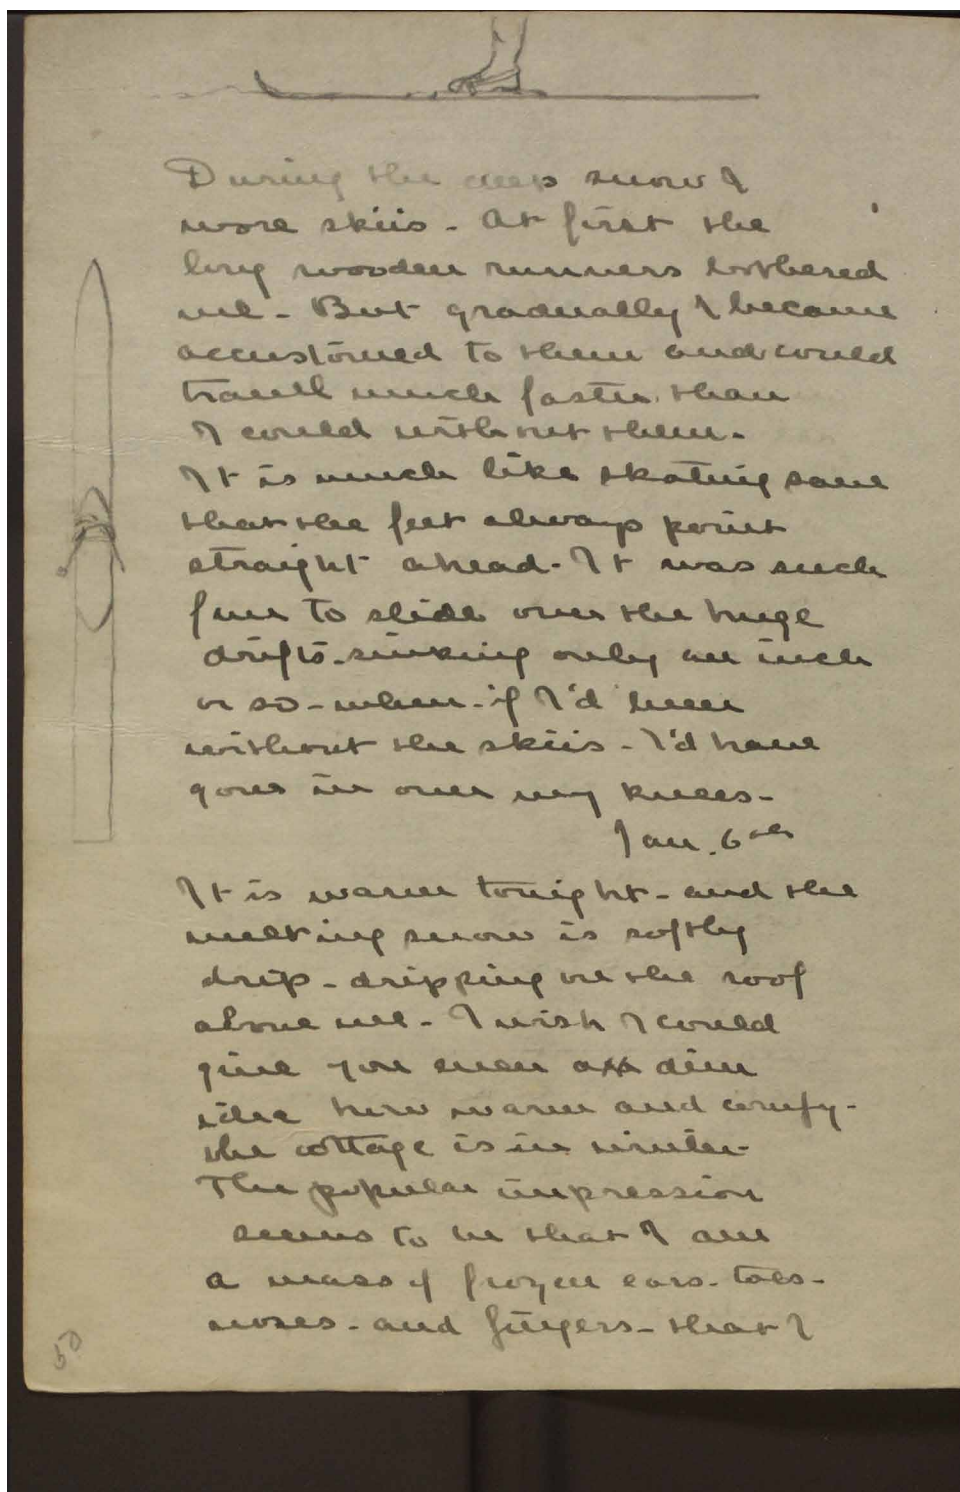 During the deep snow I
wore skiis - At first the
long wooden runners bothered
me - But gradually I became
accustomed to them and could
travell much faster than
I could without them -
It is much like skating save
that the feet always point
straight ahead - It was such
fun to slide over the huge
drifts - sinking only an inch
or so - when - if I'd been
without the skiis - I'd have
gone in over my knees -
Jan. 6th
It is warm tonight - and the
melting snow is softly
drip - dripping on the roof
above me - I wish I could
give you even a dim
idea how warm and comfy -
the cottage is in winter -
The popular impression
seems to be that I am
a mass of frozen ears - toes -
noses - and fingers - that I
50